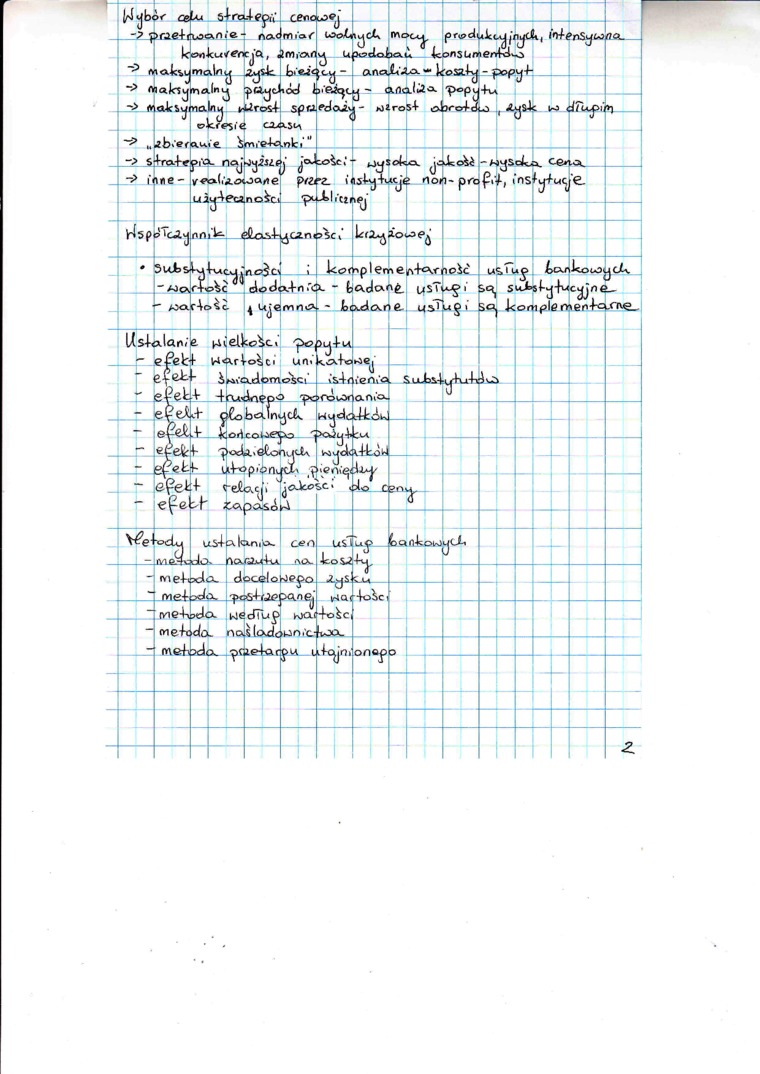 Wybór celu strategii cenowej
-> przetrwanie - nadmiar wolnych mocy produkcyjnych, intensywna
konkurencja, zmiany upodobań konsumentów
-> maksymalny zysk bieżący - analiza - koszty - popyt
-> maksymalny przychód bieżący - analiza popytu
-> maksymalny wzrost sprzedaży - wzrost obrotów, zysk w długim
okresie czasu
-> „zbieranie śmietanki"
-> strategia najwyższej jakości - wysoka jakość - wysoka cena
-> inne - realizowane przez instytucje non-profit, instytucje
użyteczności publicznej
Współczynnik elastyczności krzyżowej
• substytucyjności i komplementarność usług bankowych
- wartość dodatnia - badane usługi są substytucyjne
- wartość ujemna - badane usługi są komplementarne
Ustalanie wielkości popytu
- efekt wartości unikatowej
- efekt świadomości istnienia substytutów
- efekt trudnego porównania
- efekt globalnych wydatków
- efekt końcowego pożytku
- efekt podzielonych wydatków
- efekt utopionych pieniędzy
- efekt relacji jakości do ceny
- efekt zapasów
Metody ustalania cen usług bankowych
- metoda narzutu na koszty
- metoda docelowego zysku
- metoda postrzeganej wartości
- metoda według wartości
- metoda naśladownictwa
- metoda przetargu utajnionego
2